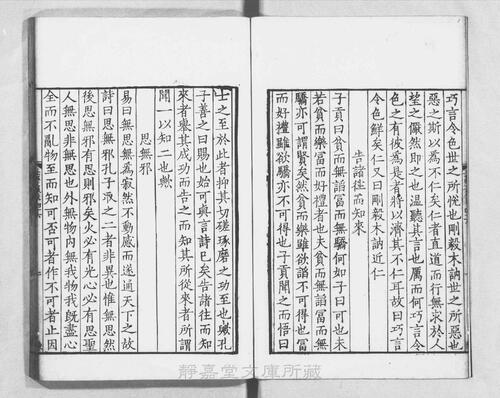 巧言令色世之所恱也剛毅木訥世之所惡也
惡之斯以為不仁矣仁者直道而行無求於人
望之儼然即之也温聽其言也厲而何巧言令
色之有彼為是者將以濟其不仁耳故曰巧言
令色鮮矣仁又曰剛毅木訥近仁
告諸往而知來
子貢曰貧而無諂富而無驕何如子曰可也未
若貧而樂富而好禮者也夫貧而無諂富而無
驕亦可謂賢矣然貧而樂雖欲諂不可得也富
而好禮雖欲驕亦不可得也子貢聞之而悟曰
士之至於此者抑其切磋琢磨之功至也歟孔
子善之曰賜也始可與言詩已矣告諸往而知
來者舉其成功而告之而知其所從來者所謂
聞一以知二也歟
思無邪
易曰無思無為寂然不動感而遂通天下之故
詩曰思無邪孔子取之二者非異也惟無思然
後思無邪有思則邪矣火必有光心必有思聖
人無思非無思也外無物内無我物我既盡心
全而不亂物至而知可否可者作不可者止因
靜嘉堂文庫所藏